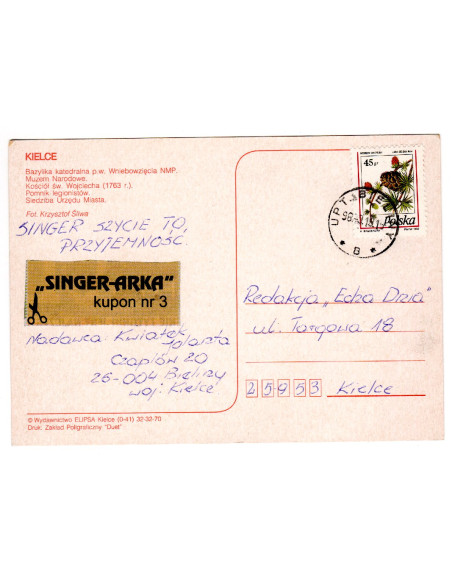 KIELCE
Bazylika katedralna p.w. Wniebowzięcia NMP.
Muzem Narodowe.
Kościół św. Wojciecha (1763 r.)
Pomnik legionistów.
Siedziba Urzędu Miasta.
Fot. Krzysztof Śliwa
SINGER SZYCIE TO,
PRZYJEMNOŚĆ.
„SINGER-ARKA"
kupon nr 3
Nadawca: Kwiatek
Jolanta
Czaplów 20
26-004 Bieliny
woj. Kielce
© Wydawnictwo ELIPSA Kielce (0-41) 32-32-70
Druk: Zakład Poligraficzny "Duet"
45 gr
Polska
UPT
B
Redakcja „Echa Dnia"
ul. Targowa 18
25953 Kielce